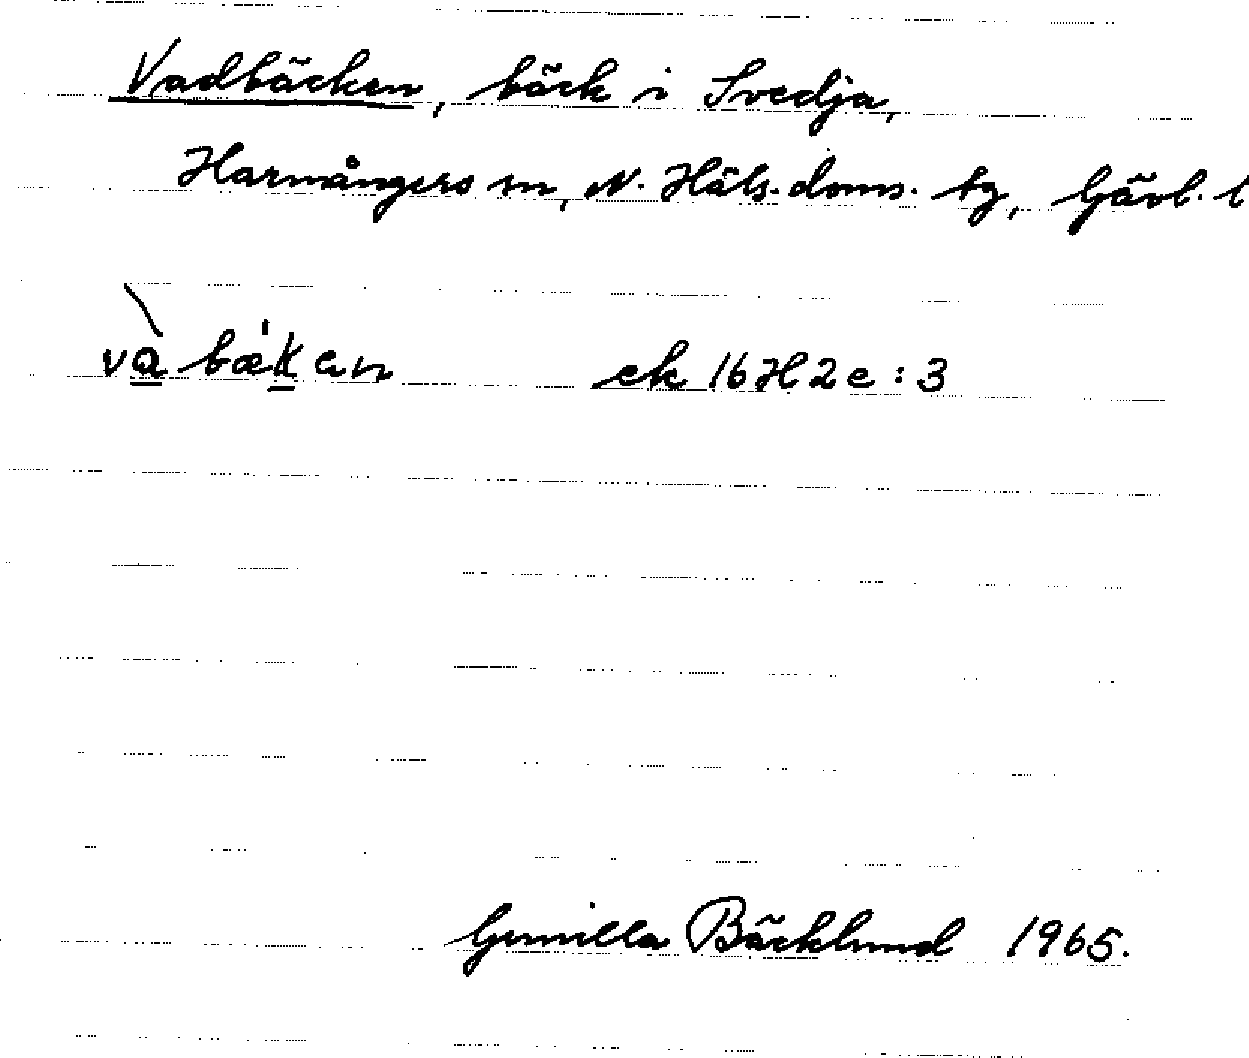 Vadbäcken, bäck i Svedja,
Harmångers sn, N. Häls. doms. tg, Gävl. l
và bæ'k en ek 16H2e:3
Gunilla Bäcklund 1965.